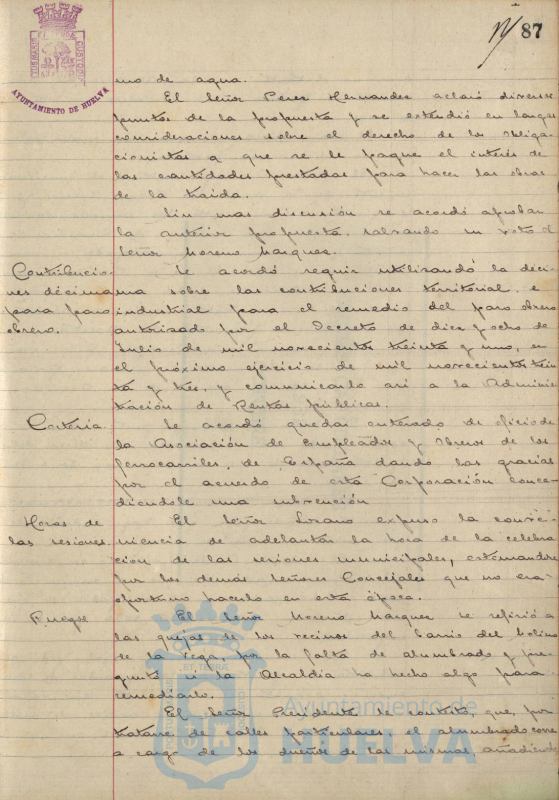 87
AYUNTAMIENTO DE HUELVA
mo de agua.
El Señor Perez Hernandez aclaró diversos
puntos de la propuesta y se extendió en largas
consideraciones sobre el derecho de los Obliga-
cionistas a que se le pague el interés de
las cantidades prestadas para hacer las obras
de la traida.
Sin mas discusión se acordó aprobar
la anterior propuesta, salvando su voto el
Señor Moreno Marquez.
Contribucio-
nes décima
para paro
obrero.
Se acordó seguir utilizando la deci-
ma sobre las contribuciones territorial e
industrial para el remedio del paro obrero
autorizado por el Decreto de diez y ocho de
Julio de mil novecientos treinta y uno, en
el próximo ejercicio de mil novecientos trein-
ta y tres, y comunicarlo asi a la Adminis-
tración de Rentas públicas.
Cortesia.
Se acordó quedar enterado de oficio de
la Asociación de Empleados y Obreros de los
ferrocarriles de España dando las gracias
por el acuerdo de esta Corporación conce-
diendole una subvención
Horas de
las sesiones.
El Señor Lozano expuso la conve-
niencia de adelantar la hora de la celebra-
cion de las sesiones municipales, estimandose
por los demás Señores Concejales que no era
oportuno hacerlo en esta época.
Ruegos
El Señor Moreno Marquez se refirió a
las quejas de los vecinos del barrio del Molino
de la Vega, por la falta de alumbrado y pre-
guntó si la Alcaldia ha hecho algo para
remediarlo.
El Señor Presidente le contestó, que, por
tratarse de calles particulares, el alumbrado corre
a cargo de los dueños de las mismas, añadiendo
Ayuntamiento de
HUELVA